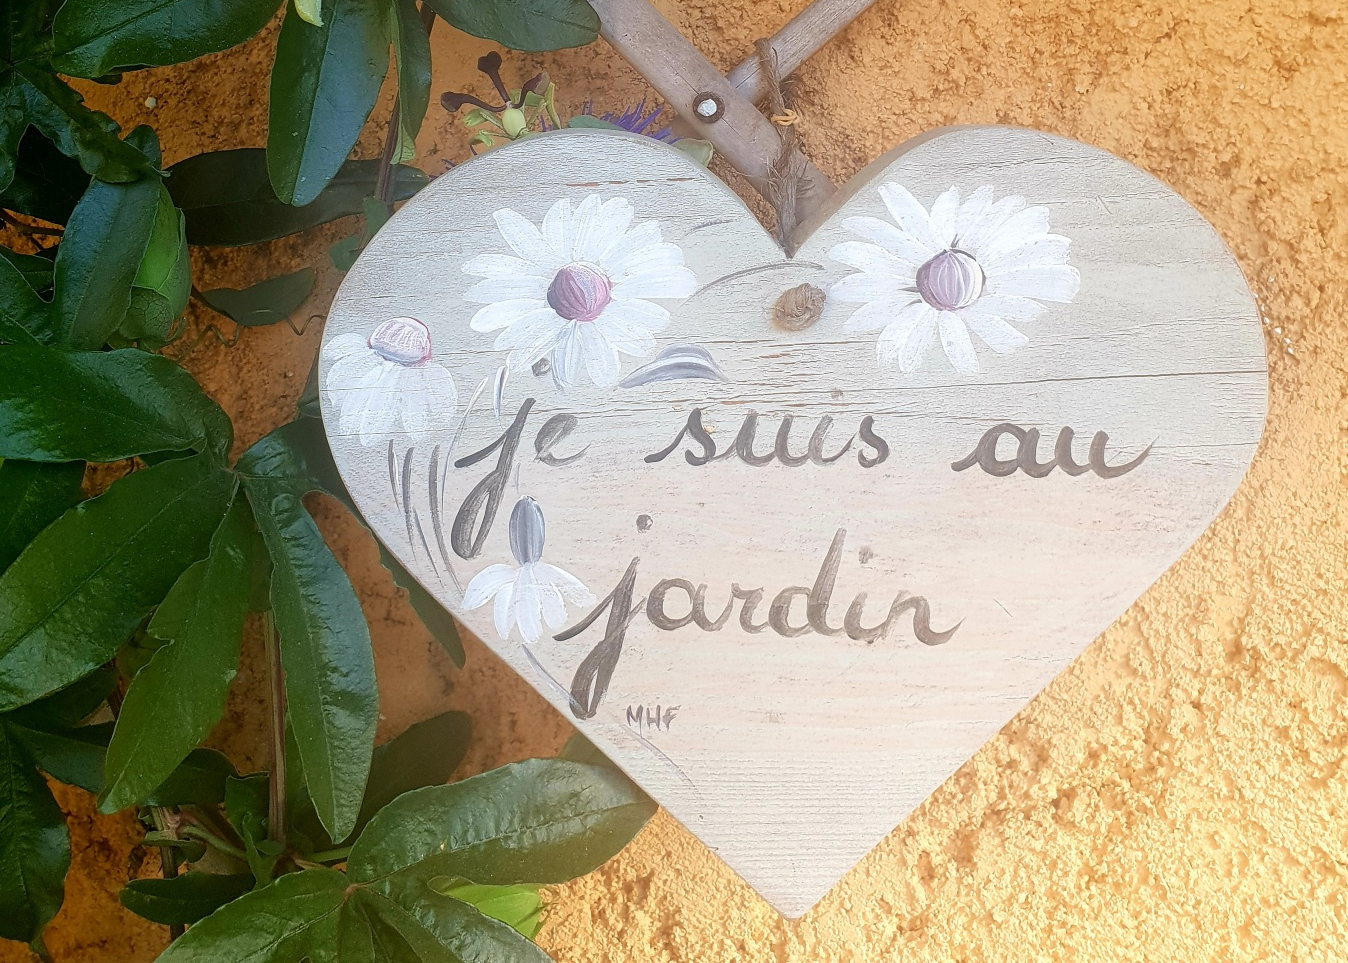 je suis au
jardin
MHF